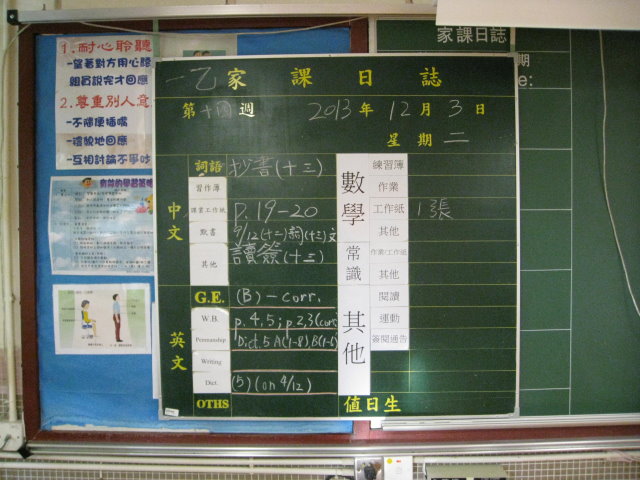 1.耐心聆聽
-望著對方用心聆
組員說完才回應
2.尊重別人意
-不隨便插嘴
-禮貌地回應
-互相討論不爭吵
家課日誌
期
一乙家課日誌
第十四週 2013年12月3日
星期二
詞語 抄書(十三)
習作簿
中文
課業工作紙 P.19-20
默書 9/12(十二)詞(十三)文
其他 讀簽(十三)
G.E. (B)-corr.
英文
W.B. p.4,5;p2,3(corr
Penmanship Dict.5 A(1-8)B(1-6)
Writing
Dict. (5)(on 4/12)
OTHS
數學
練習簿
作業
工作紙 1張
其他
常識
作業/工作紙
其他
其他
閱讀
運動
簽閱通告
值日生